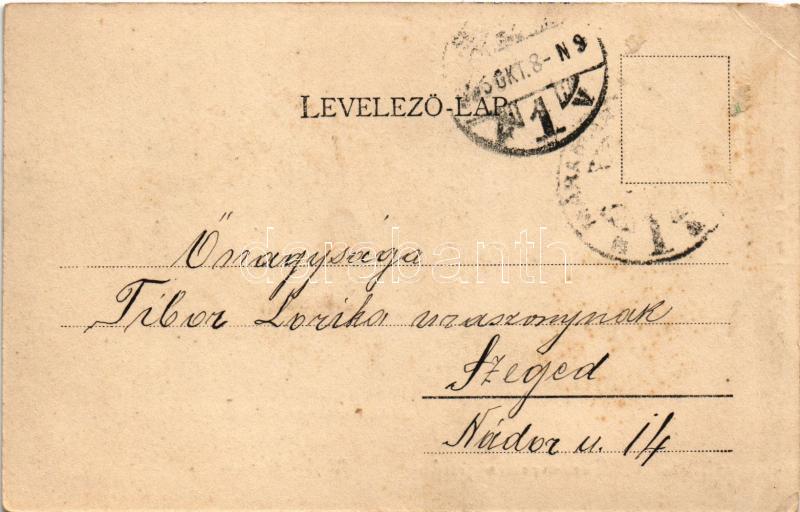 LEVELEZŐ-LAP
OKT. 8-N 9
1
A
1
Őnagysága
Tibor Lorika uraszonynak
Szeged
Nádor u. 14
darabanth